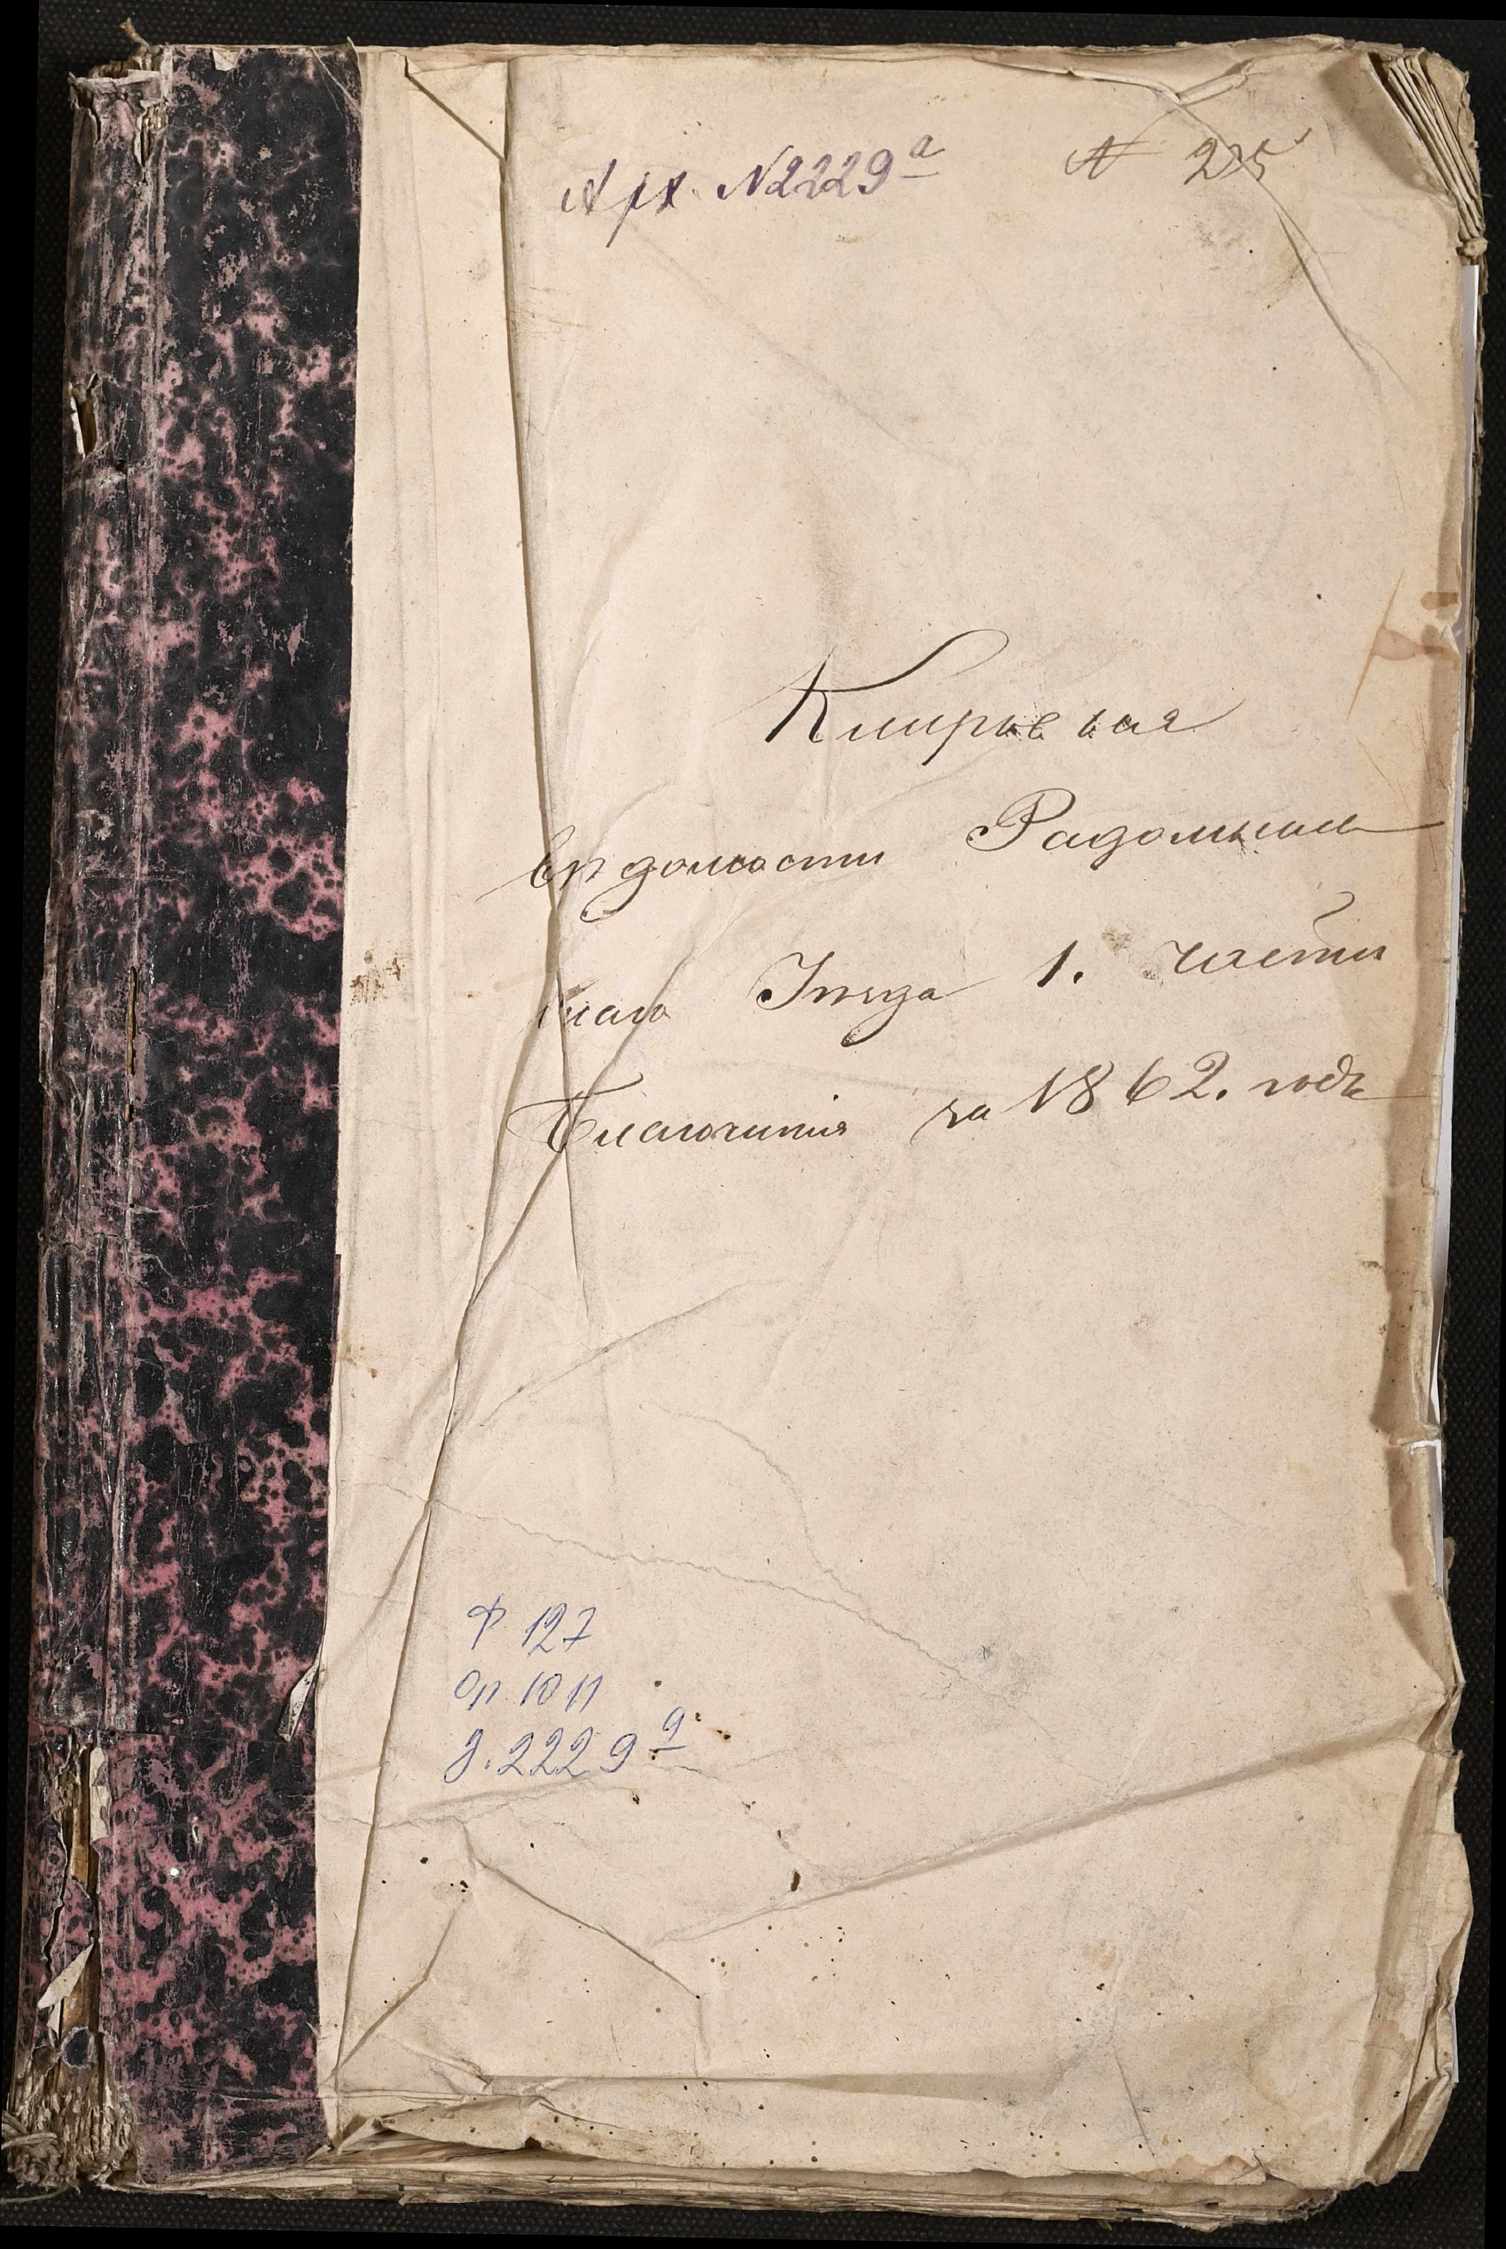 Арх. №2229а
№ 225
Клировая
вѣдомости Радомысл
скаго Уѣзда 1. части
Благочинія за 1862. годъ
Ф 127
Оп. 1011
д. 2229а